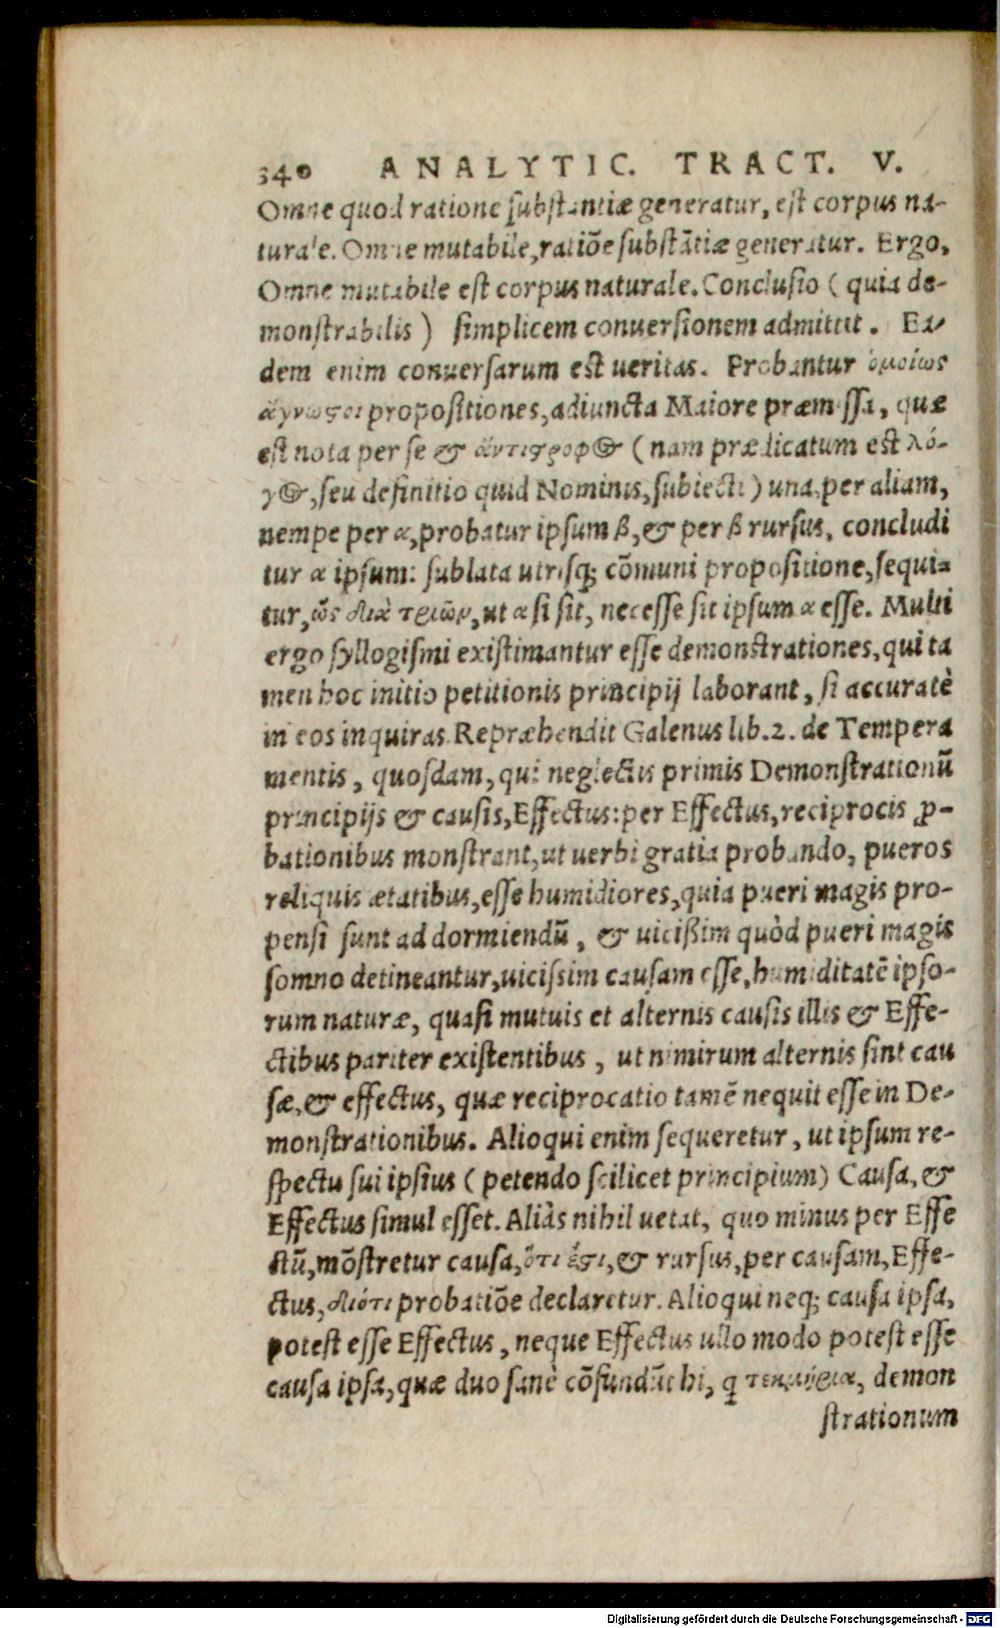 340 ANALYTIC. TRACT. V.
Omne quod ratione substantiæ generatur, est corpus na-
turale. Omne mutabile, ratiōe substātiæ generatur. Ergo,
Omne mutabile est corpus naturale. Conclusio ( quia de-
monstrabilis ) simplicem conuersionem admittit. Ea-
dem enim conuersarum est ueritas. Probantur ὁμοίως
ἄγνωϛοι propositiones, adiuncta Maiore præmissa, quæ
est nota per se & ἀντίϛροφ@ (nam prædicatum est λό-
γ@, seu definitio quid Nominis, subiecti) una, per aliam,
nempe per α, probatur ipsum β, & per β rursus, concludi
tur α ipsum: sublata utrisq; cōmuni propositione, sequi-
tur, ὡς διὰ τριῶν, ut α si sit, necesse sit ipsum α esse. Multi
ergo syllogismi existimantur esse demonstrationes, qui ta
men hoc initio petitionis principij laborant, si accuratè
in eos inquiras. Repræhendit Galenus lib. 2. de Tempera
mentis, quosdam, qui neglectis primis Demonstrationū
principijs & causis, Effectus: per Effectus, reciprocis ꝓ-
bationibus monstrant, ut uerbi gratia probando, pueros
reliquis ætatibus, esse humidiores, quia pueri magis pro-
pensi sunt ad dormiendū, & uicißim quòd pueri magis
somno detineantur, uicissim causam esse, humiditatē ipso-
rum naturæ, quasi mutuis et alternis causis illis & Effe-
ctibus pariter existentibus, ut nimirum alternis sint cau
sæ, & effectus, quæ reciprocatio tamē nequit esse in De-
monstrationibus. Alioqui enim sequeretur, ut ipsum re-
spectu sui ipsius ( petendo scilicet principium) Causa, &
Effectus simul esset. Aliàs nihil uetat, quo minus per Effe
ctū, mōstretur causa, ὅτι ἐϛι, & rursus, per causam, Effe-
ctus, διότι probatiōe declaretur. Alioqui neq; causa ipsa,
potest esse Effectus, neque Effectus ullo modo potest esse
causa ipsa, quæ duo sanè cōfundūt hi, q τεκμήρια, demon
strationum
Digitalisierung gefördert durch die Deutsche Forschungsgemeinschaft - DFG